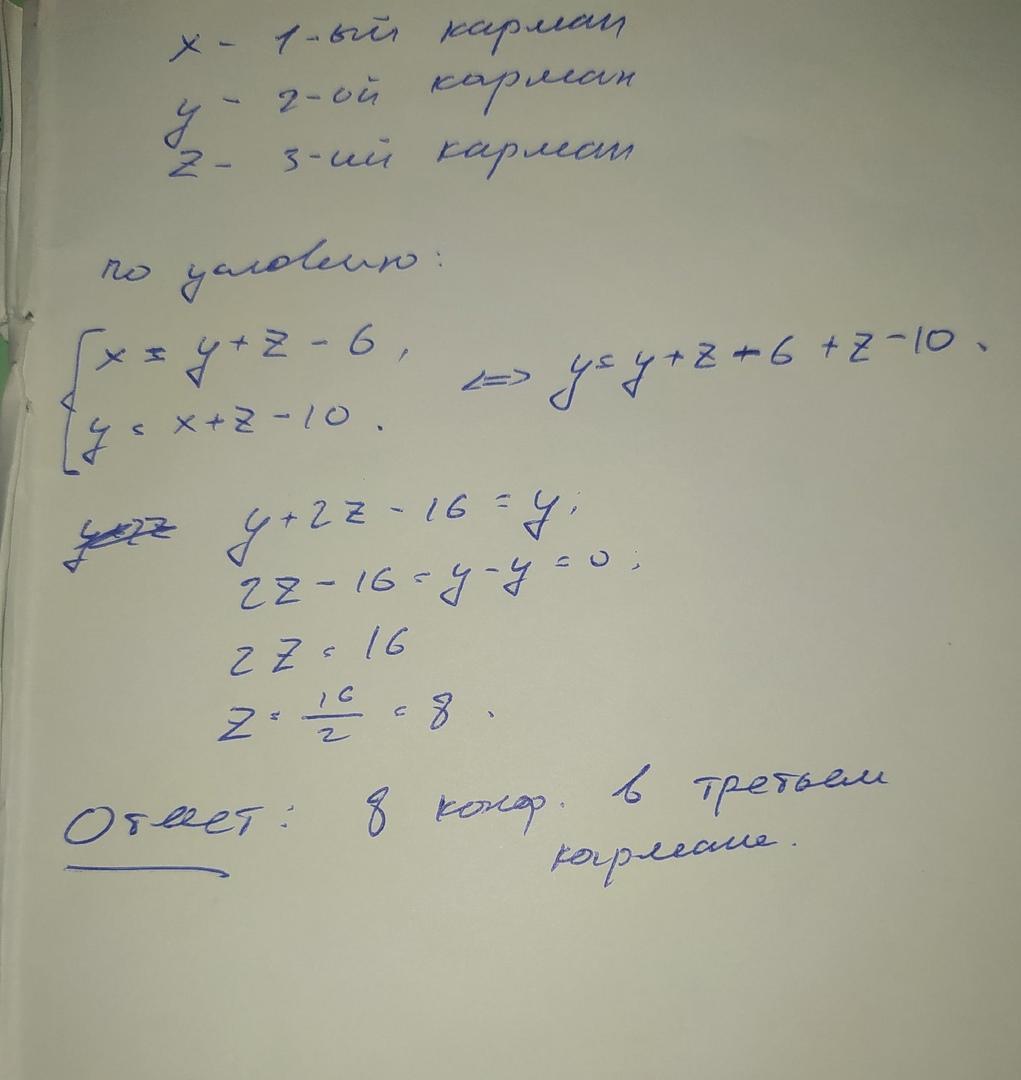 x - 1-ый карман
y - 2-ой карман
z - 3-ий карман
по условию:
x = y + z - 6, <=> y = y + z - 6 + z - 10.
y = x + z - 10.
y + 2z - 16 = y;
2z - 16 = y - y = 0;
2z = 16
z = 16/2 = 8.
Ответ: 8 конф. в третьем
кармане.